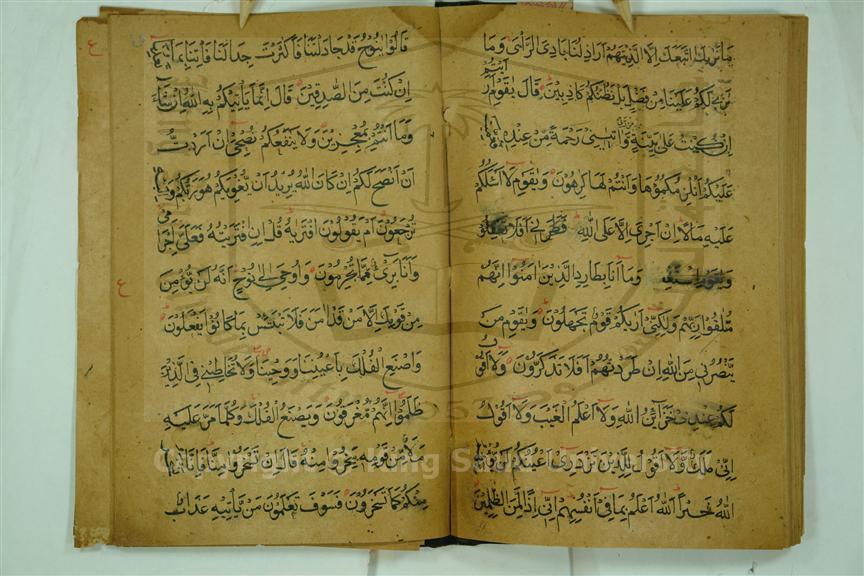 ما نريك اتبعك الا الذين هم اراذلنا بادى الراى وما
نرى لكم علينا من فضل بل نظنكم كاذبين قال يقوم ارايتم
ان كنت على بينة من ربى واتينى رحمة من عنده
عليكم انلزمكموها وانتم لها كرهون ويقوم لا اسئلكم
عليه مالا ان اجرى الا على الله
وما انا بطارد الذين امنوا انهم
ملقوا ربهم ولكنى اريكم قوما تجهلون ويقوم من
ينصرنى من الله ان طردتهم افلا تذكرون ولا اقول
لكم عندى خزائن الله ولا اعلم الغيب ولا اقول
انى ملك ولا اقول للذين تزدرى اعينكم لن يؤتيهم
الله خيرا الله اعلم بما فى انفسهم انى اذا لمن الظلمين
قالوا ينوح قد جادلتنا فاكثرت جدالنا فاتنا بما تعدنا
ان كنت من الصدقين قال انما ياتيكم به الله ان شاء
وما انتم بمعجزين ولا ينفعكم نصحى ان اردت
ان انصح لكم ان كان الله يريد ان يغويكم هو ربكم واليه
ترجعون ام يقولون افتريه قل ان افتريته فعلى اجرامى
وانا برىء مما تجرمون واوحى الى نوح انه لن يؤمن
من قومك الا من قد امن فلا تبتئس بما كانوا يفعلون
واصنع الفلك باعيننا ووحينا ولا تخاطبنى فى الذين
ظلموا انهم مغرقون ويصنع الفلك وكلما مر عليه
ملا من قومه سخروا منه قال ان تسخروا منا فانا نسخر
منكم كما تسخرون فسوف تعلمون من ياتيه عذاب